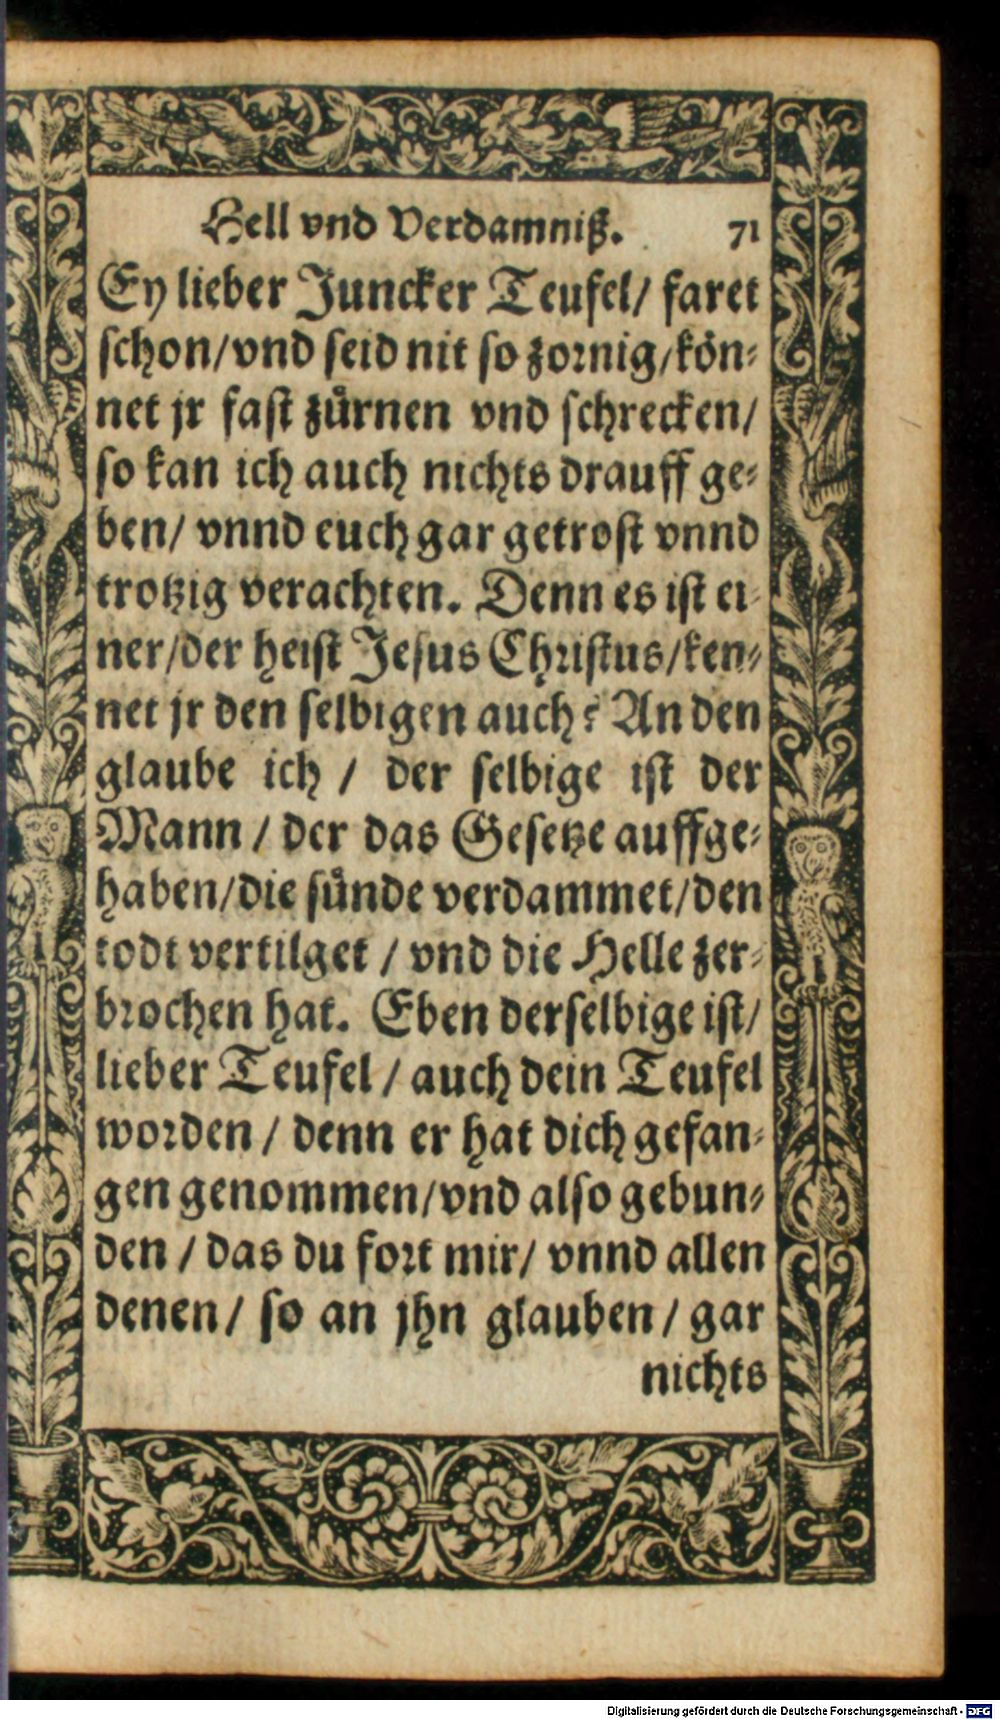 Hell vnd Verdamniß. 71
Ey lieber Juncker Teufel/ faret
schon/vnd seid nit so zornig/kön⸗
net jr fast zuͤrnen vnd schrecken/
so kan ich auch nichts drauff ge⸗
ben/ vnnd euch gar getrost vnnd
trotzig verachten. Denn es ist ei⸗
ner/der heist Jesus Christus/ken⸗
net jr den selbigen auch? An den
glaube ich / der selbige ist der
Mann / der das Gesetze auffge⸗
haben/die suͤnde verdammet/den
todt vertilget / vnd die Helle zer⸗
brochen hat. Eben derselbige ist/
lieber Teufel / auch dein Teufel
worden / denn er hat dich gefan⸗
gen genommen/vnd also gebun⸗
den / das du fort mir/ vnnd allen
denen/ so an jhn glauben / gar
nichts
Digitalisierung gefördert durch die Deutsche Forschungsgemeinschaft - DFG